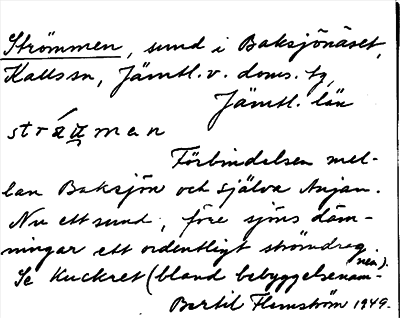 Strömmen, sund i Baksjönäset,
Kallssn, Jämtl. v. doms. tg,
Jämtl. län
stráu̯men
Förbindelsen mel-
lan Baksjön och själva Anjan.
Nu ett sund, före sjöns däm-
ningar ett ordentligt strömdrag.
Se Kuckret (bland bebyggelsenam-
nen).
Bertil Flemström 1949.